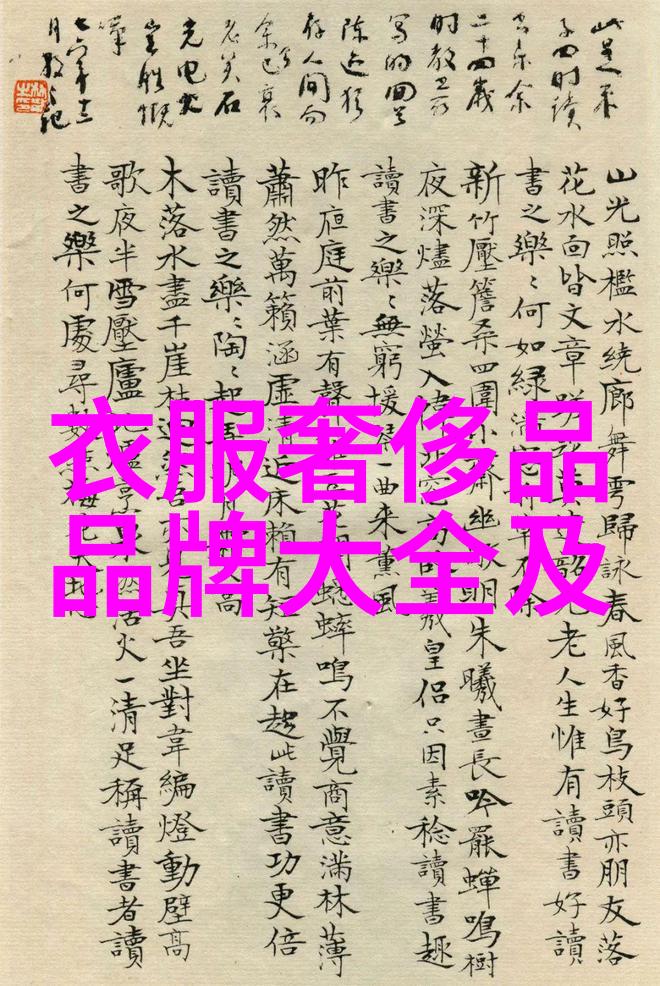 衣服奢侈品
品牌大全及
此是
四時讀
書樂余
二十四歲
時教
寫的回首
陳迹猶
存人間而
余已衰
老矣石
光电火
豈勝慨
嘆
七六年十二
月 記
山光照檻水繞廊舞雩歸詠春風香好鳥枝頭亦朋友落
花水面皆文章 老人生惟有讀書好讀
書之樂〻何如綠滿 草不除
新竹壓簷桑四圍小齋幽敞明朱曦晝長吟罷蟬鳴樹
夜深燼落螢入幃北窗 羲皇侶只因素稔讀書趣
讀書之樂〻無窮援琴一曲來薰風
昨夜庭前葉有聲 蟋蟀鳴不覺商意滿林薄
蕭然萬籟涵虛清近床賴有短檠在趁此讀書功更倍
讀書之樂〻陶〻起弄 月 高
木落水盡千崖枯迥 吾 真吾坐對韋編燈動壁高
歌夜半雪壓廬 活火一清足稱讀書者讀
書之樂何處尋數 梅花天地